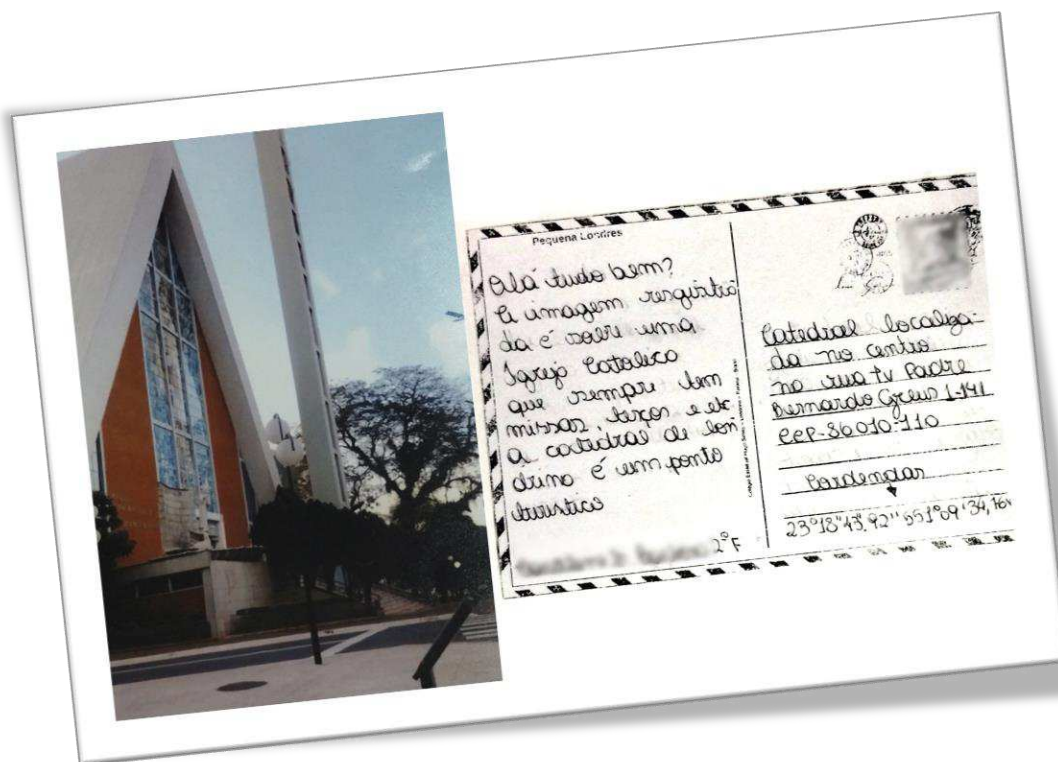 Pequena Londres
Olá tudo bem?
A imagem resquistra
da é sobre uma
Igreja Catolica
que sempre tem
missas, terços e etc
a catedral de lon
drina é um ponto
turistico
2°F
Catedral localiza-
da no centro
na rua tv Padre
Bernardo Greus 1-141
CeP-86010-110
Cordenadas
23°18"43,92" S 51°09'34,76v